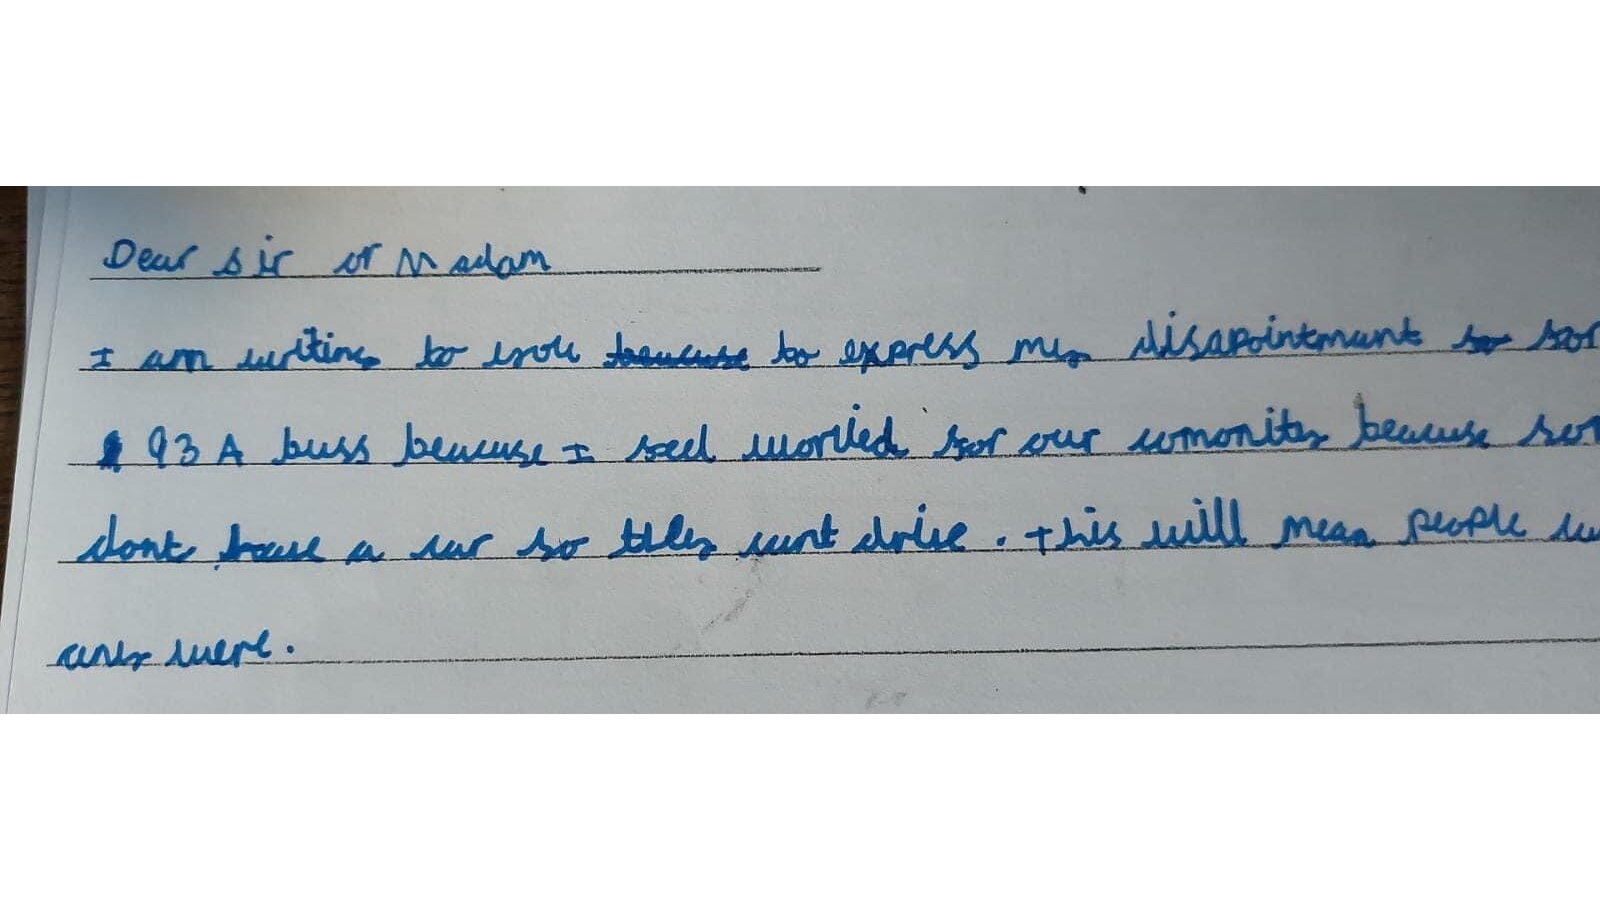 Dear Sir or Madam
I am writing to you because to express my disapointmant for
93A buss because I feel worried for our comonity because
dont have a car so they cant drive. This will mean people
any were.